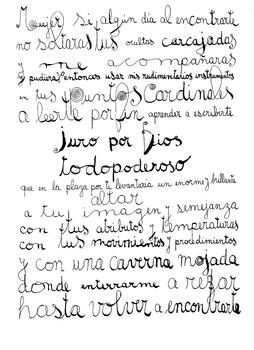 Mujer si algún día al encontrarte
no soltaras tus ocultas carcajadas
y me acompañaras
y pudiera entonces usar mis rudimentarios instrumentos
en tus Puntos Cardinales
a leerte por fin aprender a escribirte
juro por Dios
todopoderoso
que en la plaza por ti levantaría un enorme y brillante
altar
a tu imagen y semejanza
con tus atributos y temperaturas
con tus movimientos y procedimientos
y con una caverna mojada
donde enterrarme a rezar
hasta volver a encontrarte